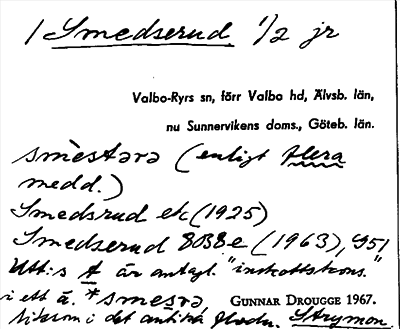 / Smedserud 1/2 jr
Valbo-Ryrs sn, förr Valbo hd, Älvsb. län,
nu Sunnervikens doms., Göteb. län.
smèstərə (enligt flera
medd.)
Smedsrud etc (1925)
Smedserud 8O38e (1963), y51
Utt:s t är antagl. "inskottskons."
i ett ä. *smesrə GUNNAR DROUGGE 1967.
liksom i det antika flodn. Strymon.